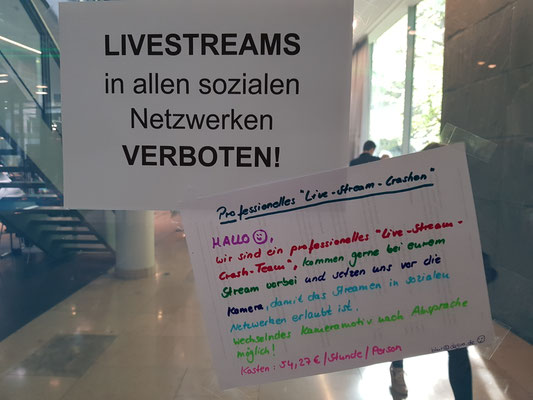 LIVESTREAMS
in allen sozialen
Netzwerken
VERBOTEN!
Professionelles "Live-Stream-Crashen"
HALLO ☺,
wir sind ein professionelles "Live-Stream-
Crash-Team", kommen gerne bei eurem
Stream vorbei und setzen uns vor die
Kamera, damit das Streamen in sozialen
Netzwerken erlaubt ist.
Wechselndes Kameramotiv nach Absprache
möglich!
Kosten: 54,27€/Stunde/Person